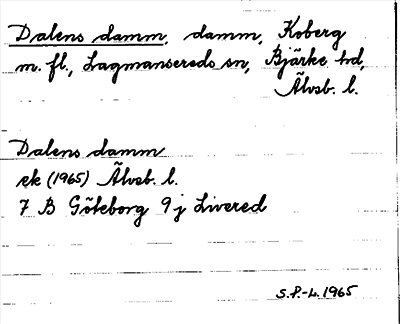 Dalens damm, damm, Koberg
m. fl., Lagmansereds sn, Bjärke hd,
Älvsb. l.
Dalens damm
ek (1965) Älvsb. l.
7 B Göteborg 9 j Livered
S.P.-L. 1965